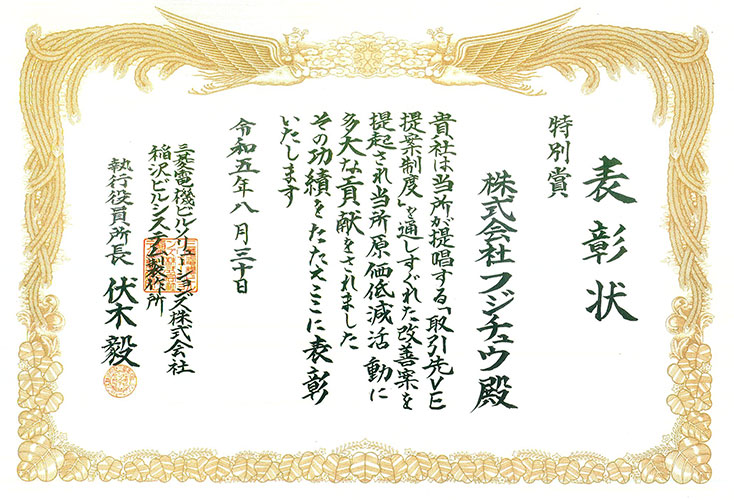 表彰状
特別賞
株式会社フジチュウ殿
貴社は当所が提唱する「取引先VE
提案制度」を通しすぐれた改善案を
提起され当所原価低減活動に
多大な貢献をされました
その功績をたたえここに表彰
いたします
令和五年八月三十日
三菱電機ビルソリューションズ株式会社
稲沢ビルシステム製作所
執行役員所長 伏木毅